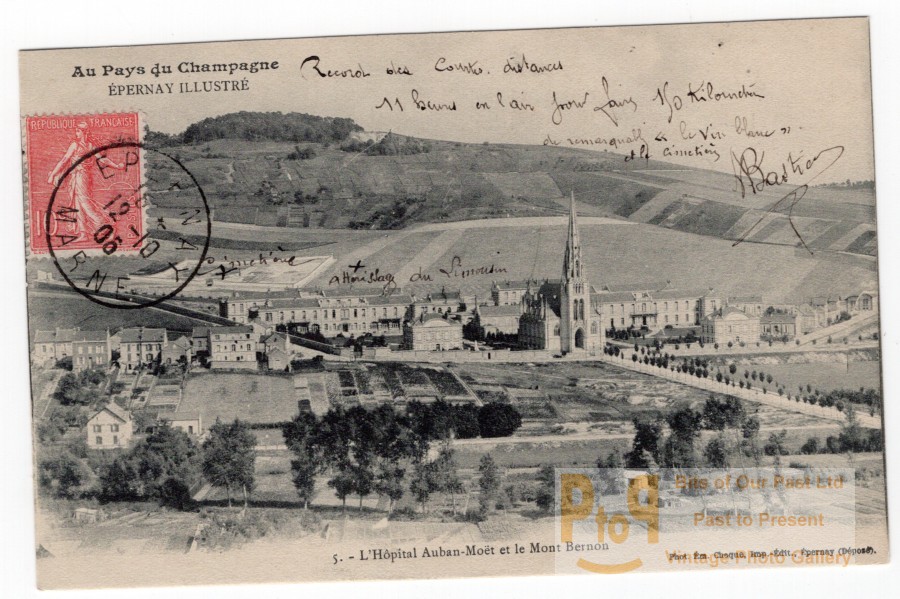 Au Pays du Champagne
ÉPERNAY ILLUSTRÉ
Record des Courtes distances
11 heures en l'air pour faire 150 Kilomètres
de "le Vin blanc"
et le Cimetière
Bastien
REPUBLIQUE FRANÇAISE
EPERNAY
12-10
06
MARNE
Cimetière
+
atterrissage du Limousin
5. - L'Hôpital Auban-Moët et le Mont Bernon
Phot. Em. Choque, imp.-Édit., Épernay (Déposé).
PtoP
Bits of Our Past Ltd
Past to Present
Vintage Photo Gallery